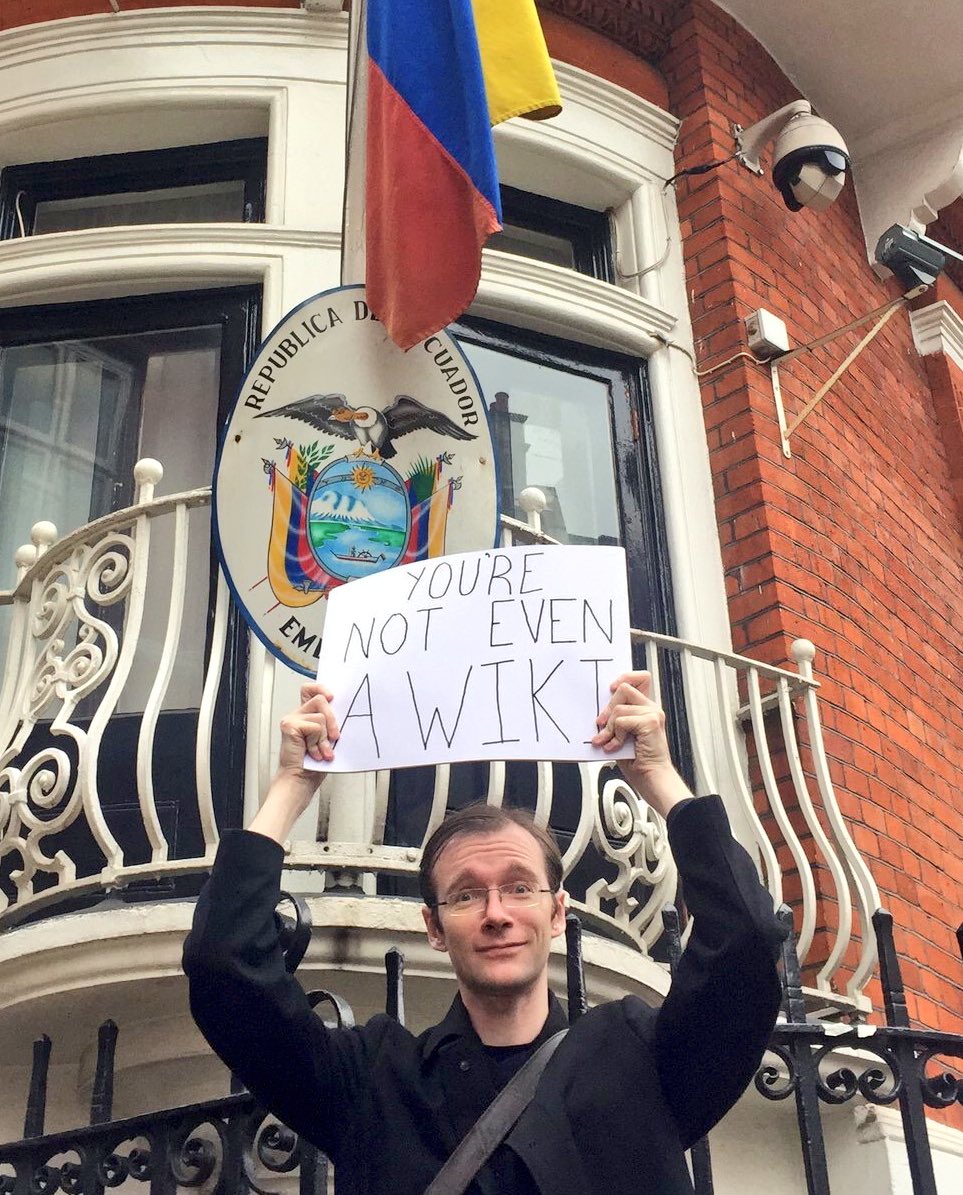 REPUBLICA DEL ECUADOR
YOU'RE
NOT EVEN
A WIKI